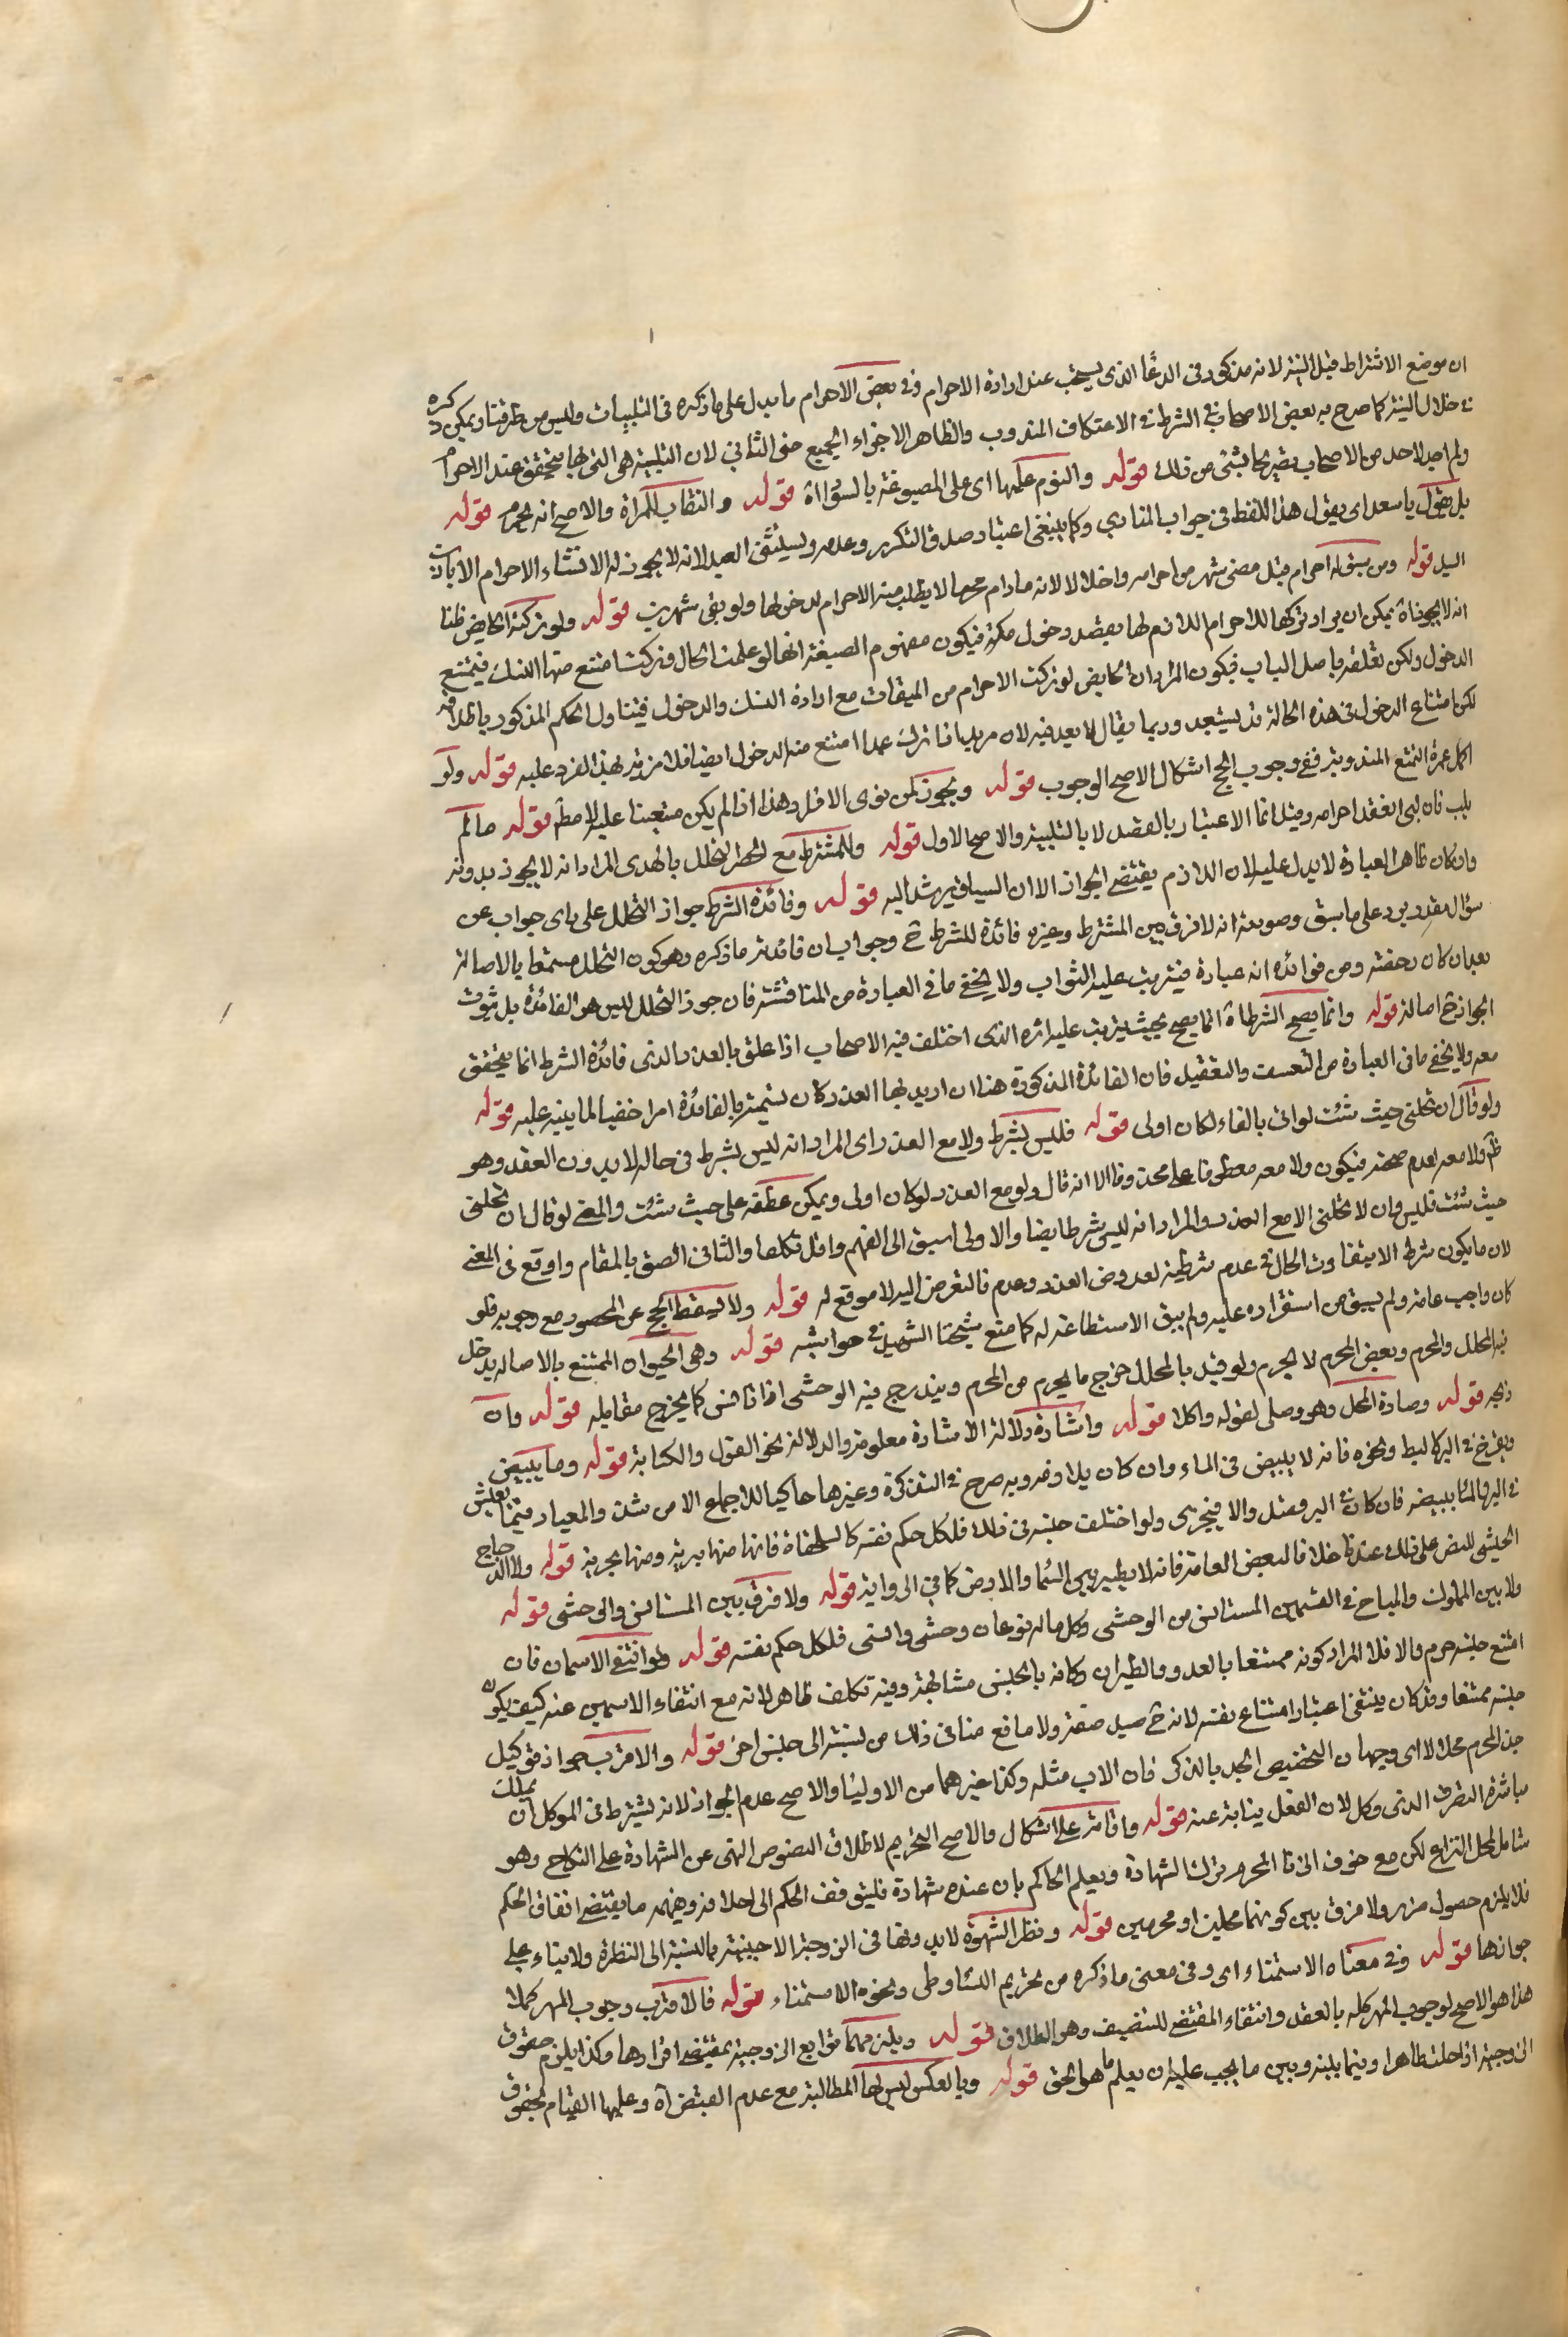 ان موضع الاشتراط قبل النية لانه مذكور فى الدعا الذى يستحب عند ارادة الاحرام وفى بعض الاحرام ما يدل على ما ذكره فى التلبيات وليس من طرقنا ويمكن ذكره
فى خلال النية كما صرح به بعض الاصحاب فى الشرط فى الاعتكاف المندوب والظاهر الاجزاء الجميع حتى الثانى لان التلبية هى التى بها يتحقق عند الاحرام
ولم اجد لاحد من الاصحاب تصريحا بشئ من ذلك قوله والنوم عليها اى على المصبوغة بالسواد اه قوله والنقاب للمراة والاصح انه يحرم قوله
بل يقول يا سعد اى يقول هذا اللفظ فى جواب المنادى وكما ينبغى اعتبار صدق التكرر وعدمه ويستثنى العبد لانه لا يجوز له الانشاء الاحرام الا باذن
السيد قوله ومن سبق له احرام قبل مضى شهر من احرامه واحلال لانه ما دام محرما لا يطلب منه الاحرام لدخولها ولو بقى شهرين قوله ولو تركته الحايض ظنا
انه لا يجوز اه يمكن ان يراد تركها للاحرام اللازم لها بقصد دخول مكة فيكون مفهوم الصيغة انها لو علمت الحال وتركت امتنع منها النسك فيمتنع
الدخول ولكن تعلقه باصل الباب فيكون المراد ان الحايض لو تركت الاحرام من الميقات مع ارادة النسك والدخول فيتناول الحكم المذكور باطلاقه
لكن امتناع الدخول فى هذه الحالة قد يستبعد وربما يقال لا بعد فيه لان مريد اذا ترك عمدا امتنع منه الدخول ايضا فلا مزية لهذا الفرد عليه قوله ولو
اكمل عمرة التمتع المندوبة ففى وجوب الحج اشكال الاصح الوجوب قوله ويجوز لمن نوى الافراد وهذا اذا لم يكن متعينا عليه الا مط قوله ما لم
يلب فان لبى انعقد احرامه وقيل انما الاعتبار بالقصد لا بالتلبية والاصح الاول قوله وللمشترط مع الحصر التحلل بالهدى المراد انه لا يجوز بدونه
وان كان ظاهر العبارة لا يدل عليه لان اللازم يقتضى الجواز الا ان السياق يرشد اليه قوله وفائدة الشرط جواز التحلل على باى جواب عن
سؤال مقدر يرد على ما سبق وصورته انه لا فرق بين المشترط وغيره فائدة للشرط ح وجواب ان فائدته ما ذكره وهو كون التحلل مستحقا بالاصالة
بعد ان كان رخصة ومن فوائده انه عبادة فيترتب عليه الثواب ولا يخفى ما فى العبارة من المناقشة فان جواز التحلل ليس هو الفائدة بل ثبوت
الجواز ح اصالة قوله وانما يصح الشرط اه انما يصح بحيث يترتب عليه اثره الذى اختلف فيه الاصحاب اذا علق بالعذر الذى فائدة الشرط انما يتحقق
معه ولا يخفى ما فى العبارة من التعسف والتعقيد فان الفائدة المذكورة هنا ان اريد بها العذر كان تسميته بالفائدة امرا خفيا لما ينبه عليه قوله
ولو قال ان تحلنى حيث شئت لو اتى بالفاء لكان اولى قوله فليس بشرط ولا مع العذر اى المراد انه ليس بشرط فى حاله لا بدون العقد وهو
ظ ولا معه لعدم صحته فيكون ولا معه معطوفا على محذوف الا انه قال ولو مع العذر لو كان اولى ويمكن عطفه على حيث شئت والمعنى لو قال ان تحلنى
حيث شئت فليس وان لا تحلنى الا مع العذر والمراد انه ليس شرطا ايضا والاولى اسبق الى الفهم واقل تكلفا والثانى الصق بالمقام واوقع فى المعنى
لان ما يكون شرطا لا يتفاوت الحال فى عدم شرطيته لعروض العذر وعدم فالتعرض اليه لا موقع له قوله ولا يسقط الحج عن المحصور مع وجوبه فلو
كان واجب عامه ولم يسبق من استقراره عليه ولم يبق الاستطاعة له كما منع شيخنا الشهيد فى حواشيه قوله وهى الحيوان الممتنع بالاصالة يدخل
فيه المحلل والمحرم وبعض المحرم لا يحرم ولو قيد بالمحلل خرج ما يحرم من المحرم ويندرج فيه الوحشى اذا تانس كما يخرج مقابله قوله وان
ذبحه قوله وصاده المحل وهو وصلى لقوله واكلا قوله واشارة ودلالة الاشارة معلومة والدلالة نحو القول والكتابة قوله وما يبيض
ويفرخ فى البر كالبط ونحوه فانه لا يبيض فى الماء وان كان يلازمه وبه صرح فى التذكرة وغيرها حاكيا للاجماع الا من شذ والمعيار فيما يعيش
فى البر والماء ببيضه فان كان فى البر فصيد والا فبحرى ولو اختلف جنسه فى ذلك فلكل حكم نفسه كالسلحفاة فانها منها برية ومنها بحرية قوله والدجاج
الحبشى للنص على ذلك عندنا خلافا لبعض العامة فانه لا يطير بين السما والارض كما فى الرواية قوله ولا فرق بين المستانس والوحشى قوله
ولا بين المملوك والمباح فى القسمين المستانس من الوحشى وكل ما له نوعان وحشى وانسى فلكل حكم نفسه قوله ولو انتفى الاسمان فان
امتنع جنسه حرم والا فلا المراد كونه ممتنعا بالعدو والطيران وكانه بالجنس مشابهة وفيه تكلف ظاهر لانه مع انتفاء الاسمين عنه كيف يكون
جنسه ممتنعا وقد كان ينبغى اعتبار امتناع نفسه لانه ح صيد صفة ولا مانع مناف ذلك من نسبته الى جنس اخر قوله والاقرب جواز توكيل
جد المحرم محلا لا اى وجهان التخصيص الجد بالذكر فان الاب مثله وكذا غيرهما من الاوليا والاصح عدم الجواز لانه يشترط فى الموكل ان يملك
مباشرة التصرف الذى وكل لان الفعل ينابة عنه قوله واقامته على اشكال والاصح التحريم لاطلاق النصوص النهى عن الشهادة على النكاح وهو
شامل لمحل النزاع لكن مع خوف الزنا المحرم بترك الشهادة ويعلم الحاكم بان عنده شهادة فليتوقف الحكم الى احلاله وفهمه ما يقتضى ايقاف الحكم
فلا يلزم حصول ضرر ولا فرق بين كونهما محلين او محرمين قوله ونظر الشهوة لا بدونها فى الزوجة الاجنبية بالنسبة الى النظرة ولا بناء على
جوازها قوله وفى معناه الاستمناء اى وفى معنى ما ذكره من تحريم النساء وطى ونحوه الاستمناء قوله فالاقرب وجوب المهر كملا
هذا هو الاصح لوجوب المهر كله بالعقد وانتفاء المقتضى للتنصيف وهو الطلاق قوله ويلزمهما توابع الزوجية بمقتضى اقرارها وكذا يلزم حقوق
الزوجية اذا حلت ظاهرا وفيما بينه وبين ما يجب عليه ان يعلم ما هو الحق قوله وبالعكس ليس لها المطالبة مع عدم القبض اه وعليها القيام بحقوق